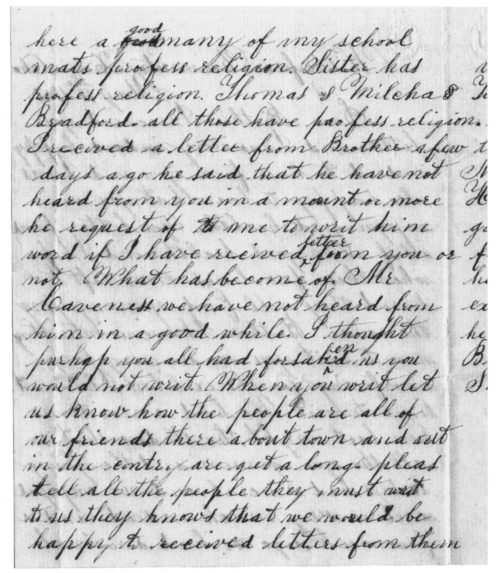 here a good many of my school
mats profess religion. Sister has
profess religion. Thomas & Milcha S
Bradford. all those have profess religion.
I received a letter from Brother a few
days a go he said that he have not
heard from you in a mount or more
he request of me to writ him
word if I have reieived letter from you or
not. What has become of Mr
Caveness we have not heard from
him in a good while I thought
purhap you all had forsaken us you
would not writ. When you writ let
us know how the people are all of
our friends there a bout town and aut
in the contry are get a long. pleas
tell all the people they must writ
to us they knows that we would be
happy to received letters from them